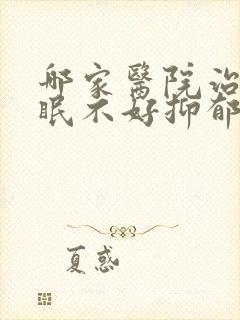 哪家醫院治
眠不好抑郁
夏惑